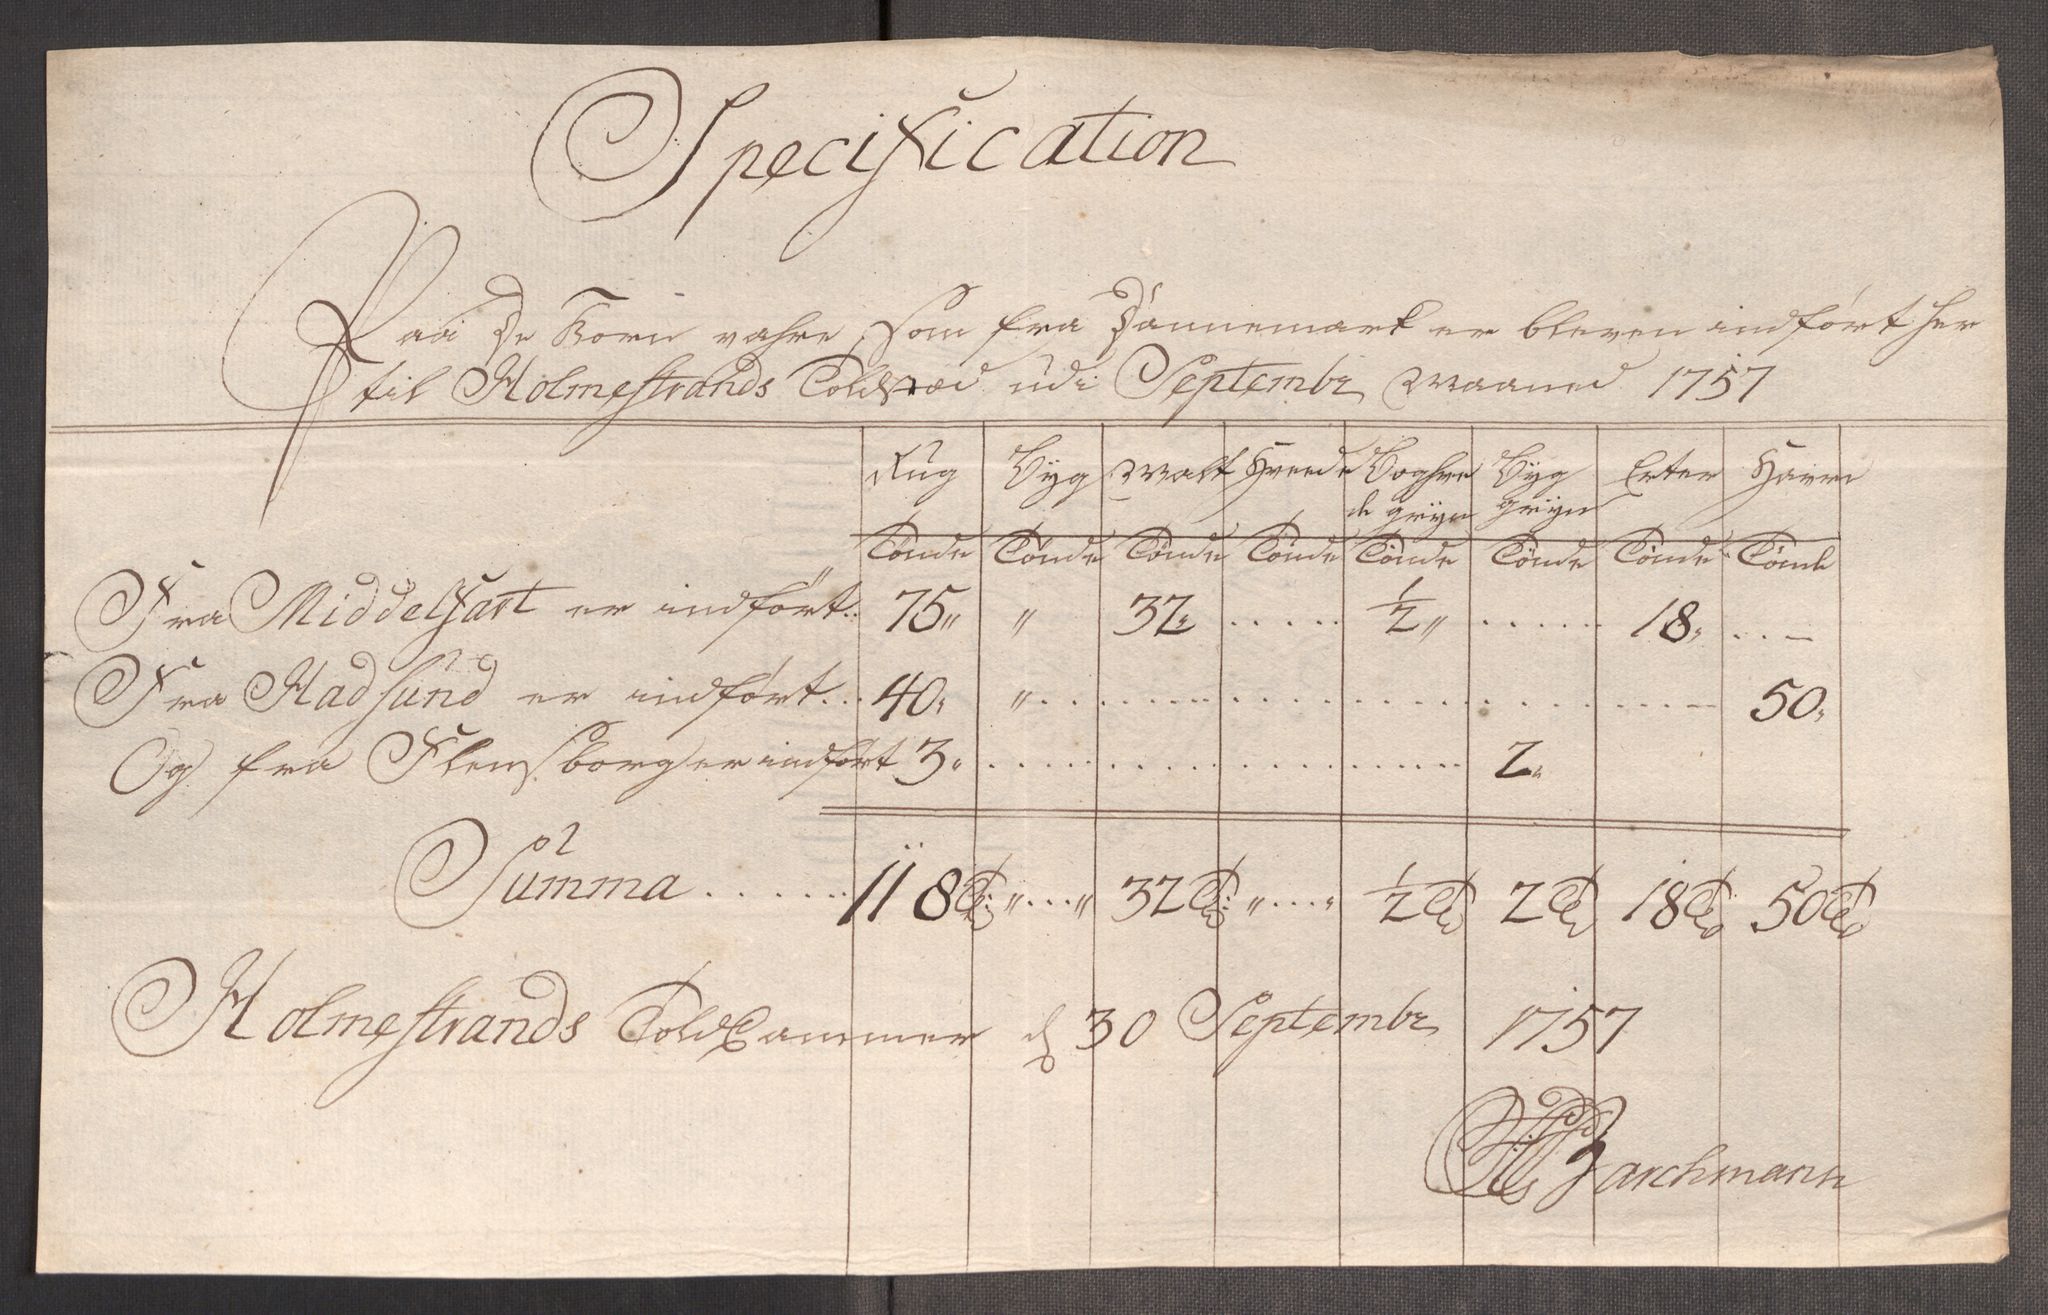 Specification
Paa De Korn vahre, som fra Dännemark er bleven indført her
til Holmestrands Toldstæd udi Septembr Maaned 1757
Rug Byg Malt Hvede Boghve Byg Erter Havre
de gryn gryn
Tønde Tønde Tønde Tønde Tønde Tønde Tønde Tønde
Fra Middelfart er indført.. 75„ „ 32„ ...... ½„ ...... 18„ ...–
Fra Hadsund er indført... 40„ „ .................. 50„
Og fra Flensborg er indført 3„ .................. 2„
Summa ...... 118 Tr: „....„ 32 Tr: „....„ ½ Td 2 Td 18 Td 50 Td
Holmestrands ToldCammer d 30 Septembr 1757
Barchmann